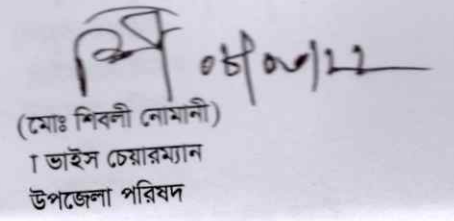 ০৮/০৬/২২
(মোঃ শিবলী নোমানী)
ভাইস চেয়ারম্যান
উপজেলা পরিষদ